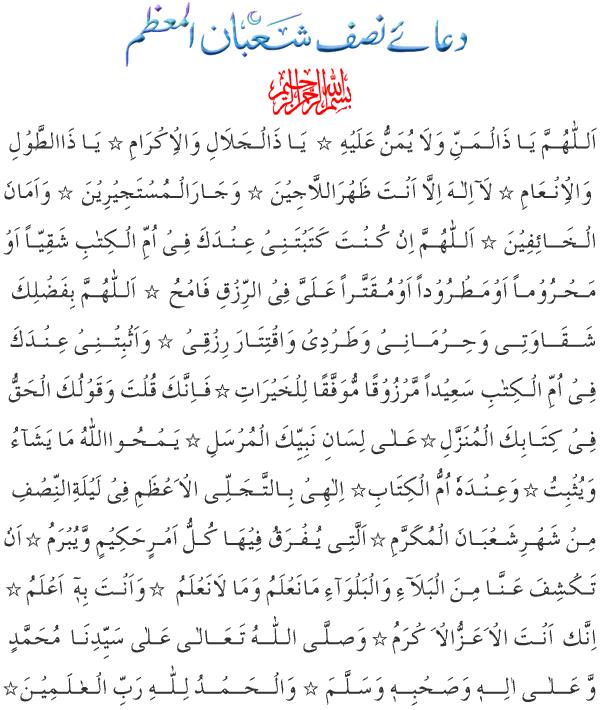 دعائے نصف شعبان المعظم
بسم الله الرحمن الرحيم
اَللّٰهُمَّ يَا ذَالْمَنِّ وَلَا يُمَنُّ عَلَيْهِ ☆ يَا ذَالْجَلَالِ وَالْاِكْرَامِ ☆ يَا ذَاالطَّوْلِ
وَالْاِنْعَامِ ☆ لَآاِلٰهَ اِلَّا اَنْتَ ظَهْرَاللَّاجِيْنَ ☆ وَجَارَالْمُسْتَجِيْرِيْنَ ☆ وَاَمَانَ
الْخَائِفِيْنَ ☆ اَللّٰهُمَّ اِنْ كُنْتَ كَتَبْتَنِيْ عِنْدَكَ فِيْ اُمِّ الْكِتٰبِ شَقِيًّا اَوْ
مَحْرُوْماً اَوْمَطْرُوْداً اَوْمُقَتَّراً عَلَيَّ فِي الرِّزْقِ فَامْحُ ☆ اَللّٰهُمَّ بِفَضْلِكَ
شَقَاوَتِيْ وَحِرْمَانِيْ وَطَرْدِيْ وَاقْتِتَارَ رِزْقِيْ ☆ وَاَثْبِتْنِيْ عِنْدَكَ
فِيْ اُمِّ الْكِتٰبِ سَعِيْداً مَّرْزُوْقًا مُّوَفَّقًا لِلْخَيْرَاتِ ☆ فَاِنَّكَ قُلْتَ وَقَوْلُكَ الْحَقُّ
فِيْ كِتَابِكَ الْمُنَزَّلِ ☆ عَلٰى لِسَانِ نَبِيِّكَ الْمُرْسَلِ ☆ يَمْحُوااللّٰهُ مَا يَشَآءُ
وَيُثْبِتُ ☆ وَعِنْدَهٗ اُمُّ الْكِتَابِ ☆ اِلٰهِيْ بِالتَّجَلِّى الْاَعْظَمِ فِيْ لَيْلَةِالنِّصْفِ
مِنْ شَهْرِشَعْبَانَ الْمُكَرَّمِ ☆ اَلَّتِيْ يُفْرَقُ فِيْهَا كُلُّ اَمْرٍحَكِيْمٍ وَّيُبْرَمُ ☆ اَنْ
تَكْشِفَ عَنَّا مِنَ الْبَلَآءِ وَالْبَلْوَآءِ مَانَعْلَمُ وَمَا لَانَعْلَمُ ☆ وَاَنْتَ بِهٖٓ اَعْلَمُ ☆
اِنَّكَ اَنْتَ الْاَعَزُّالْاَكْرَمُ ☆ وَصَلَّى اللّٰهُ تَعَالٰى عَلٰى سَيِّدِنَا مُحَمَّدٍ
وَّعَلٰى اٰلِهٖ وَصَحْبِهٖ وَسَلَّمَ ☆ وَالْحَمْدُ لِلّٰهِ رَبِّ الْعٰلَمِيْنَ ☆